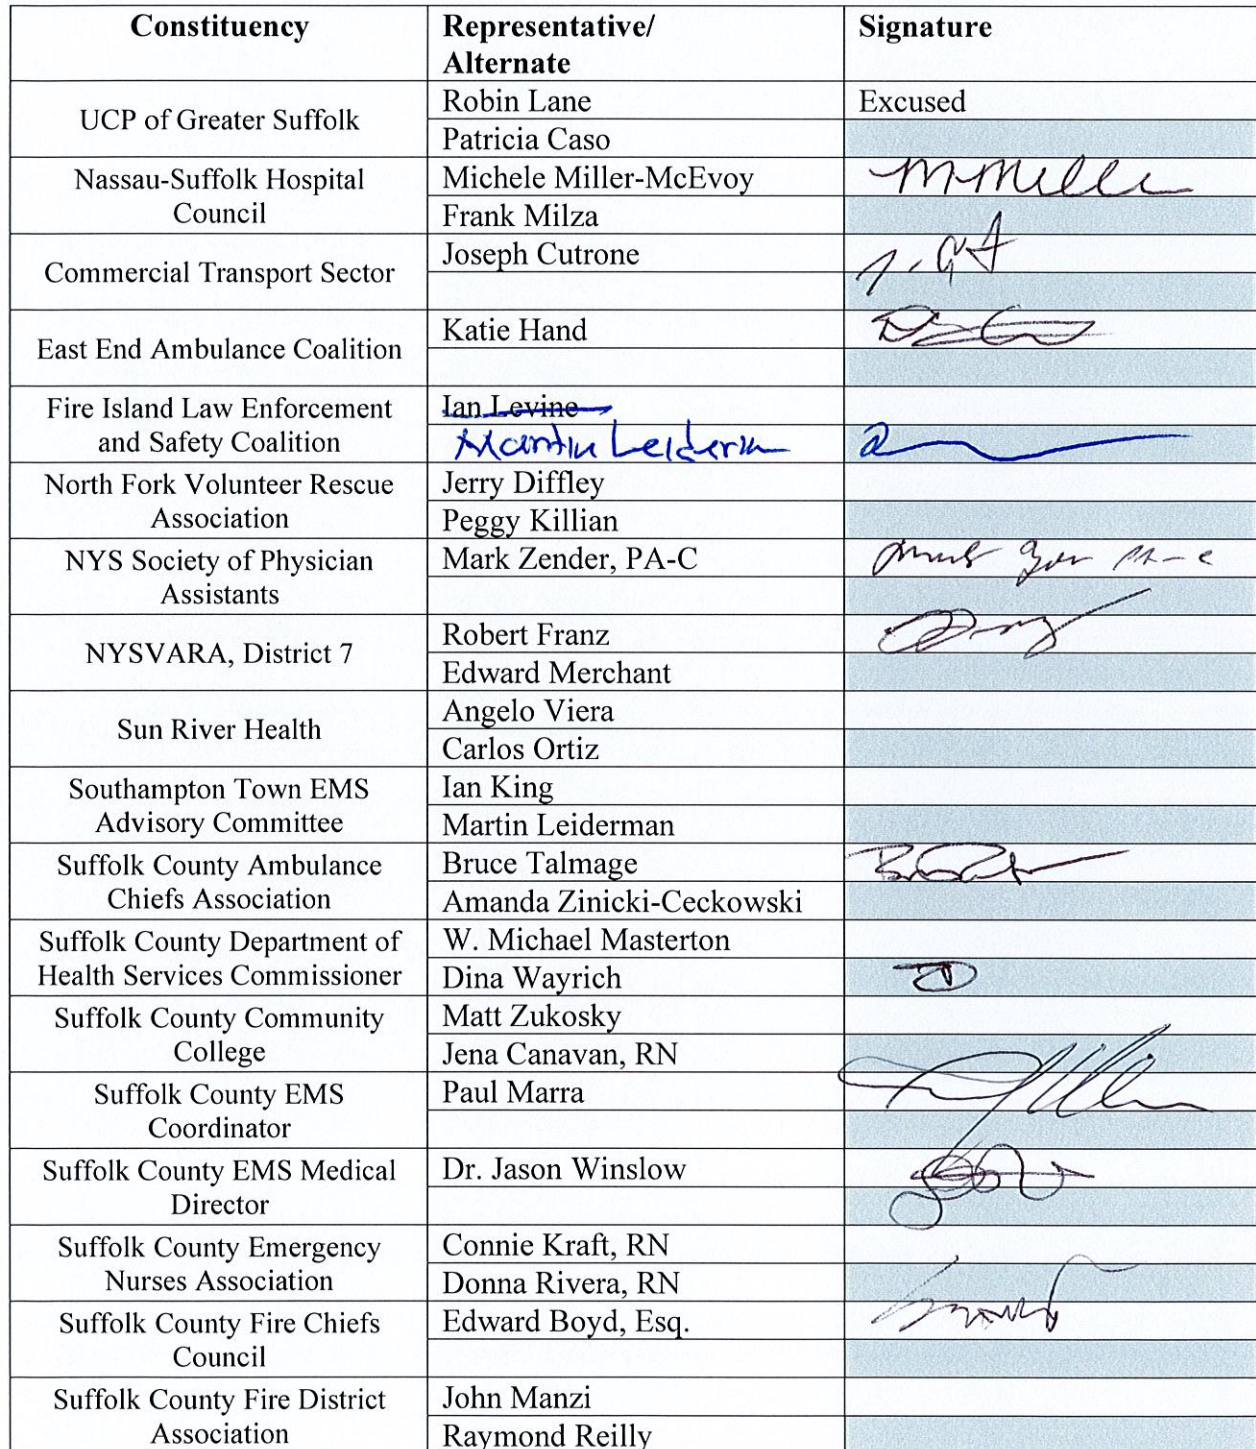 Constituency Representative/ Signature
Alternate
UCP of Greater Suffolk
Robin Lane Excused
Patricia Caso
Nassau-Suffolk Hospital
Council
Michele Miller-McEvoy M Mille
Frank Milza
Commercial Transport Sector
Joseph Cutrone
East End Ambulance Coalition
Katie Hand
Fire Island Law Enforcement
and Safety Coalition
Ian Levine
Martin Leiderm
North Fork Volunteer Rescue
Association
Jerry Diffley
Peggy Killian
NYS Society of Physician
Assistants
Mark Zender, PA-C PA-C
NYSVARA, District 7
Robert Franz
Edward Merchant
Sun River Health
Angelo Viera
Carlos Ortiz
Southampton Town EMS
Advisory Committee
Ian King
Martin Leiderman
Suffolk County Ambulance
Chiefs Association
Bruce Talmage
Amanda Zinicki-Ceckowski
Suffolk County Department of
Health Services Commissioner
W. Michael Masterton
Dina Wayrich
Suffolk County Community
College
Matt Zukosky
Jena Canavan, RN
Suffolk County EMS
Coordinator
Paul Marra
Suffolk County EMS Medical
Director
Dr. Jason Winslow
Suffolk County Emergency
Nurses Association
Connie Kraft, RN
Donna Rivera, RN
Suffolk County Fire Chiefs
Council
Edward Boyd, Esq.
Suffolk County Fire District
Association
John Manzi
Raymond Reilly